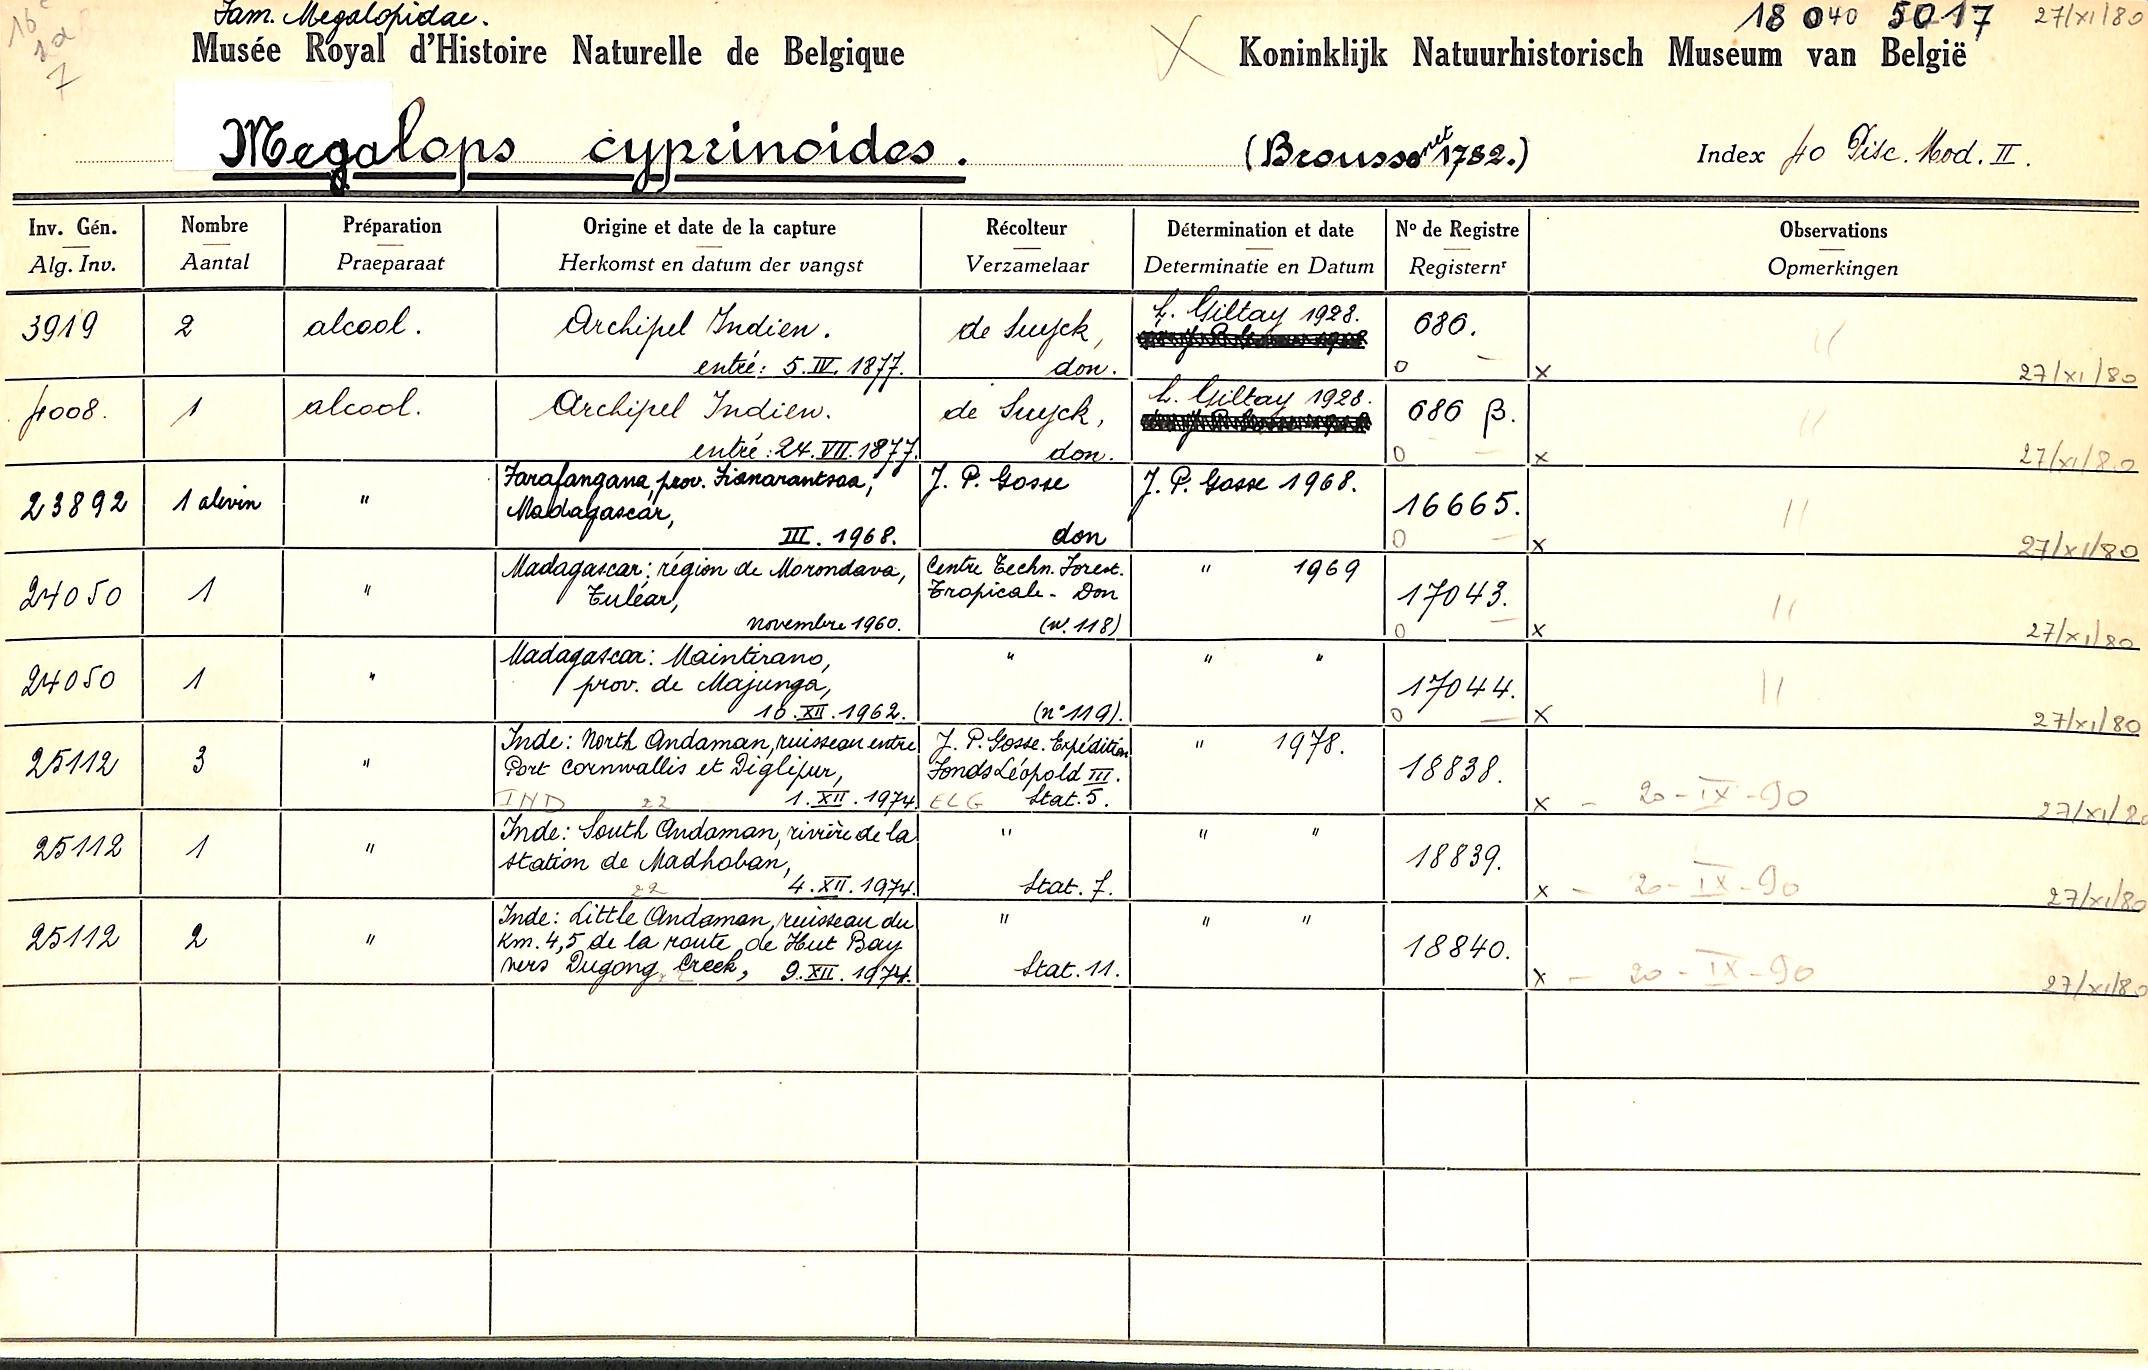 Fam. Megalopidae.
18 040 5017 27/XI/80
Musée Royal d'Histoire Naturelle de Belgique
Koninklijk Natuurhistorisch Museum van België
Megalops cyprinoides. (Broussonet 1782.) Index 40 Pisc. Mod. II.
Inv. Gén. Nombre Préparation Origine et date de la capture Récolteur Détermination et date No de Registre Observations
Alg. Inv. Aantal Praeparaat Herkomst en datum der vangst Verzamelaar Determinatie en Datum Registernr Opmerkingen
3919 2 alcool. Archipel Indien. de Suyck, L. Giltay 1928. 686.
entré: 5.IV.1877. don. 0 — x 27/XI/80
4008. 1 alcool. Archipel Indien. de Suyck, L. Giltay 1928. 686 β.
entré: 24.VII.1877. don. 0 — x 27/XI/80
23892 1 alevin " Farafangana, prov. Fianarantsoa, J. P. Gosse J. P. Gosse 1968. 16665. "
Madagascar,
III. 1968. don 0 — x 27/XI/80
24050 1 " Madagascar: région de Morondava, Centre Techn. Forest. " 1969 17043. "
Tuléar, Tropicale - Don
novembre 1960. (n°. 118) 0 — x 27/XI/80
24050 1 " Madagascar: Maintirano, " " " 17044. "
prov. de Majunga,
10.XII.1962. (n° 119). 0 — x 27/XI/80
25112 3 " Inde: North Andaman, ruisseau entre J. P. Gosse. Expédition " 1978. 18838.
Port Cornwallis et Diglipur, Fonds Léopold III.
IND 22 1.XII.1974 ELG Stat. 5. x - 20-IX-90 27/XI/80
25112 1 " Inde: South Andaman, rivière de la " " " 18839.
station de Madhoban,
22 4.XII.1974. Stat. 7. x - 20-IX-90 27/XI/80
25112 2 " Inde: Little Andaman, ruisseau du " " " 18840.
Km. 4,5 de la route de Hut Bay
vers Dugong Creek, 9.XII.1974. Stat. 11. x - 20-IX-90 27/XI/80